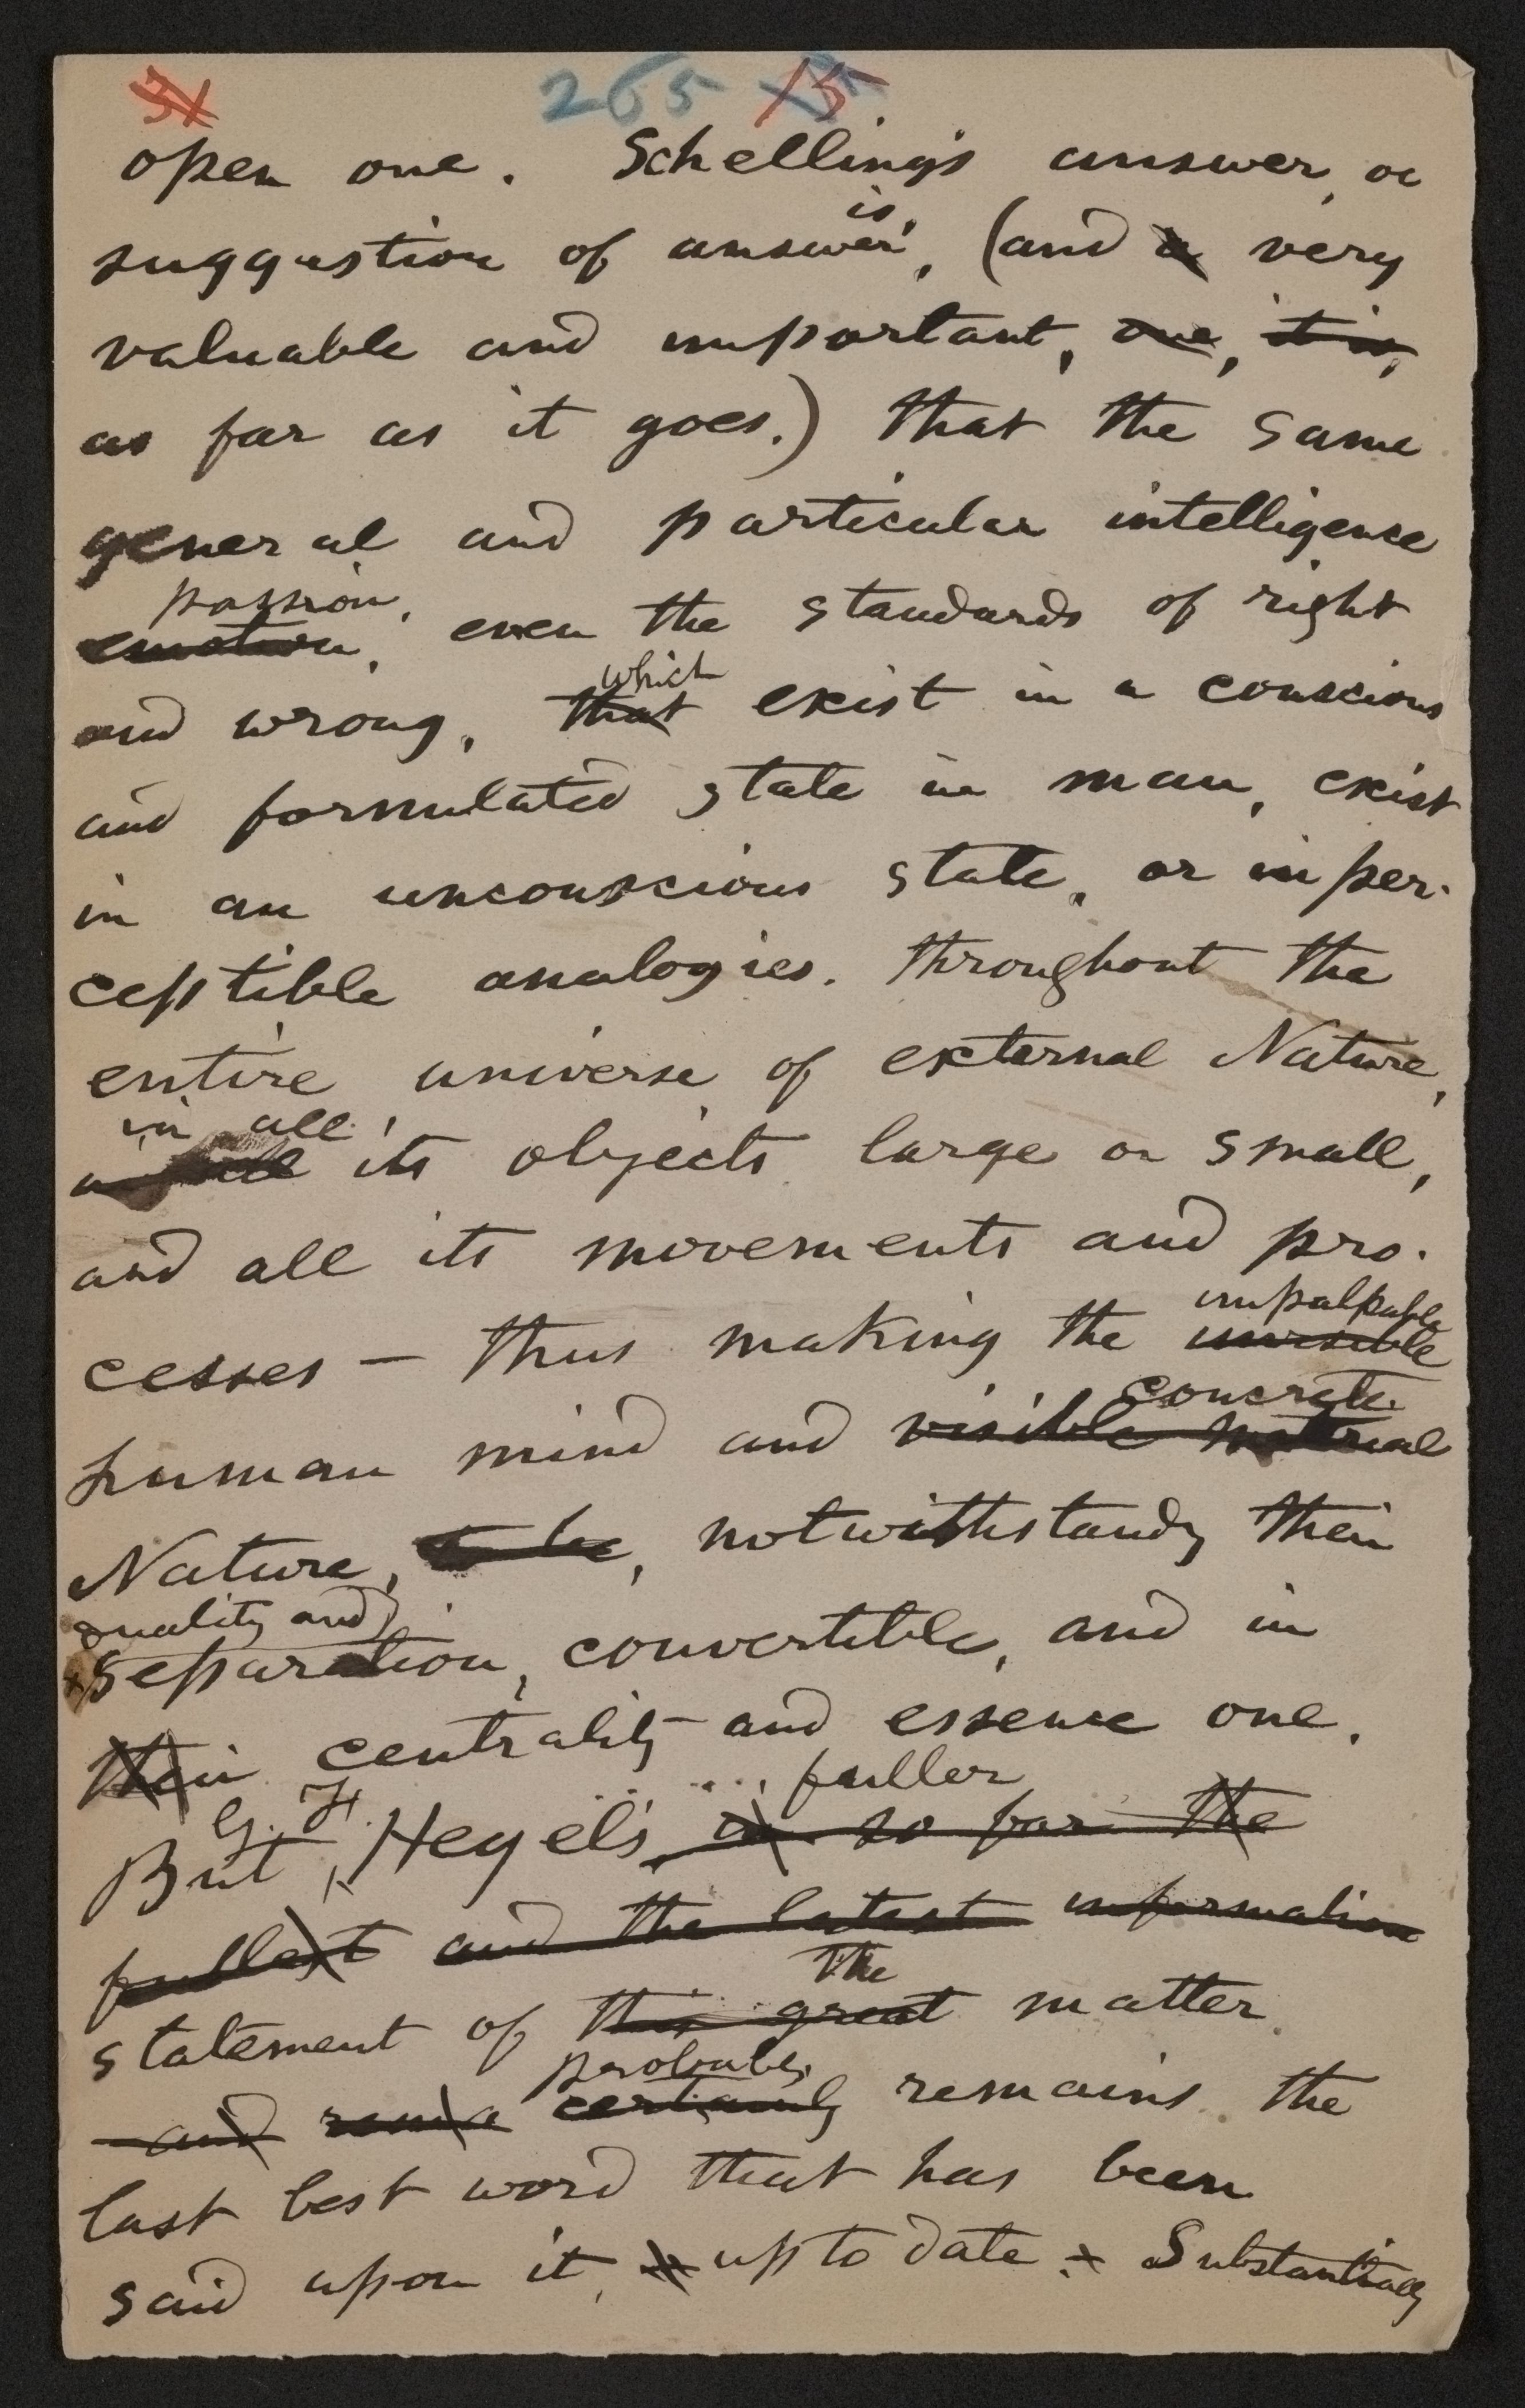 31 265 15
open one. Schelling's answer, or
is,
suggestion of answer, (and a very
valuable and important, one, it is,
as far as it goes.) that the same
general and particular intelligence
passion,
emotion, even the standards of right
which
and wrong, that exist in a conscious
and formulated state in man, exist
in an unconscious state, or in per-
ceptible analogies, throughout the
entire universe of external Nature,
in all
its objects large or small,
and all its movements and pro-
impalpable
cesses — thus making the invisible
concrete
human mind and visible material
Nature, to be, notwithstandg their
quality and
separation, convertible, and in
their centrality and essence one.
G. F. fuller
But Hegel's is so far the
fullest and the latest information
the
statement of this great matter
probably
and certainly remains the
last best word that has been
said upon it, up to date. x Substantially